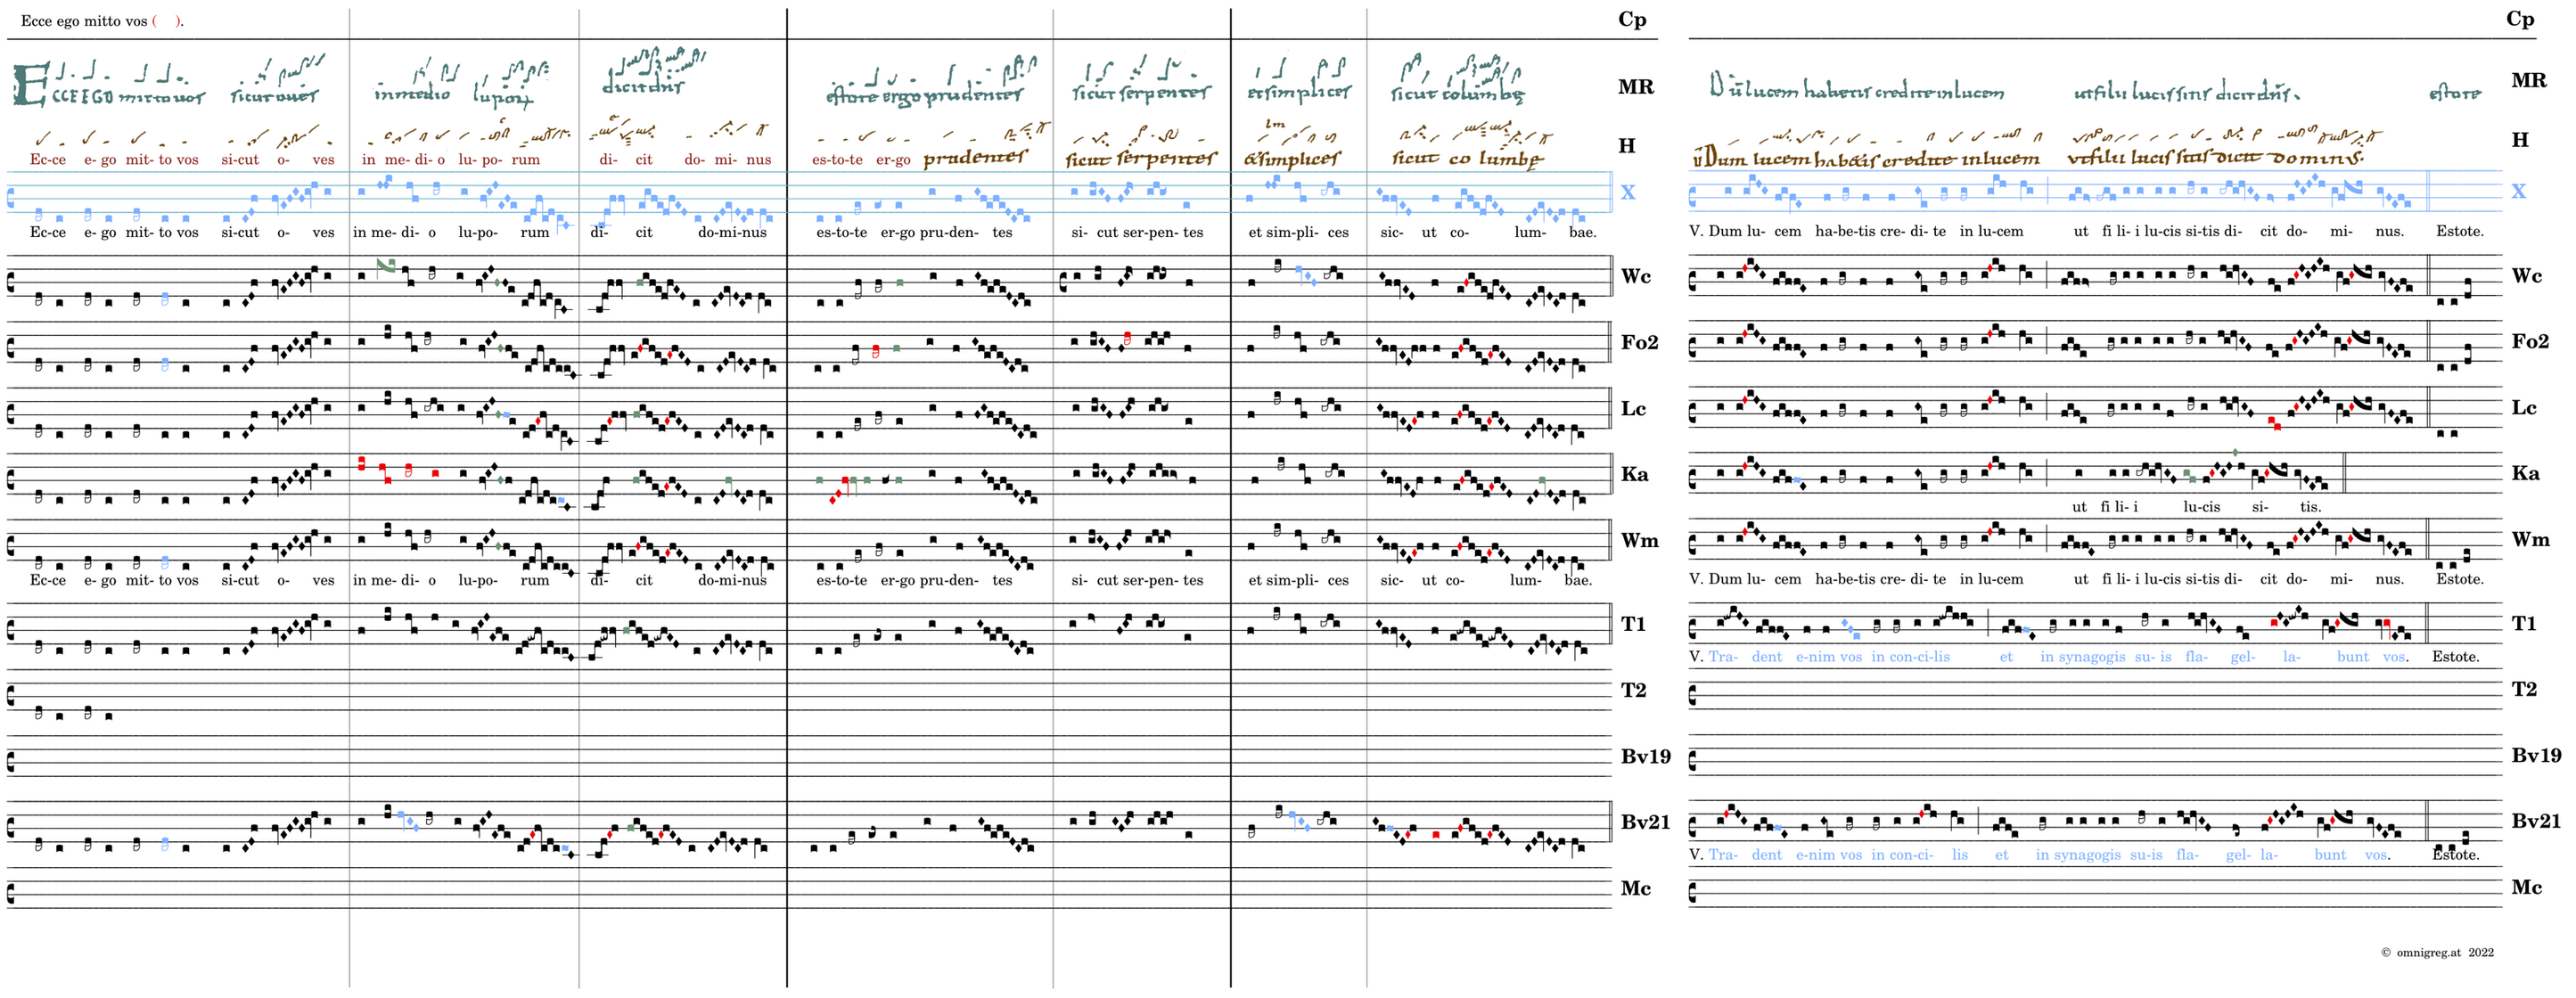 Ecce ego mitto vos ( ). Cp Cp
ECCE EGO mitto vos sicut oves in medio lupor dicit dns estote ergo prudentes sicut serpentes et simplices sicut columbę MR Dū lucem habetis credite in lucem ut filii lucis sitis dicit dns. estote MR
lm
Ec-ce e- go mit- to vos si-cut o- ves in me- di- o lu- po- rum di- cit do- mi- nus es-to-te er-go prudentes sicut serpentes &simplices sicut co lumbę H Dum lucem habetis credite in lucem vt filii lucis sitis dicit dominus. H
X X
Ec-ce e- go mit- to vos si-cut o- ves in me- di- o lu-po- rum di- cit do-mi-nus es-to-te er-go pru-den- tes si- cut ser-pen- tes et sim-pli- ces sic- ut co- lum- bae. V. Dum lu- cem ha-be-tis cre- di- te in lu-cem ut fi li- i lu-cis si-tis di- cit do- mi- nus. Estote.
Wc Wc
Fo2 Fo2
Lc Lc
Ka Ka
ut fi li- i lu-cis si- tis.
Wm Wm
Ec-ce e- go mit- to vos si-cut o- ves in me- di- o lu-po- rum di- cit do-mi-nus es-to-te er-go pru-den- tes si- cut ser-pen- tes et sim-pli- ces sic- ut co- lum- bae. V. Dum lu- cem ha-be-tis cre- di- te in lu-cem ut fi li- i lu-cis si-tis di- cit do- mi- nus. Estote.
T1 T1
V. Tra- dent e-nim vos in con-ci-lis et in synagogis su- is fla- gel- la- bunt vos. Estote.
T2 T2
Bv19 Bv19
Bv21 Bv21
V. Tra- dent e-nim vos in con-ci- lis et in synagogis su-is fla- gel- la- bunt vos. Estote.
Mc Mc
© omnigreg.at 2022